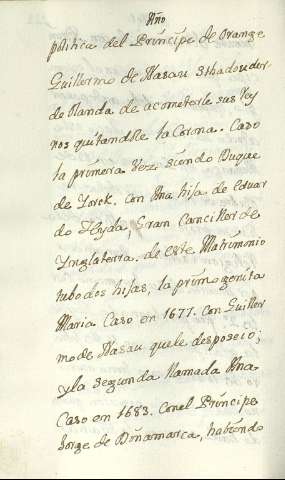 Año
politica del Principe de Orange
Guillermo de Nasau Sthadouder
de Olanda de acometerle sus Rey
nos quitandole la Corona. Caso
la primera Vez siendo Duque
de Iorck. con Ana hija de eduar
do Hyda, Gran Canciller de
Ynglaterra. de este Matrimonio
tubo dos hijas, la primogenita
Maria Caso en 1677. con Guiller
mo de Nasau que le desposeio;
y la segunda llamada Ana
Caso en 1683. con el Principe
Jorge de Dinamarca, habiendo